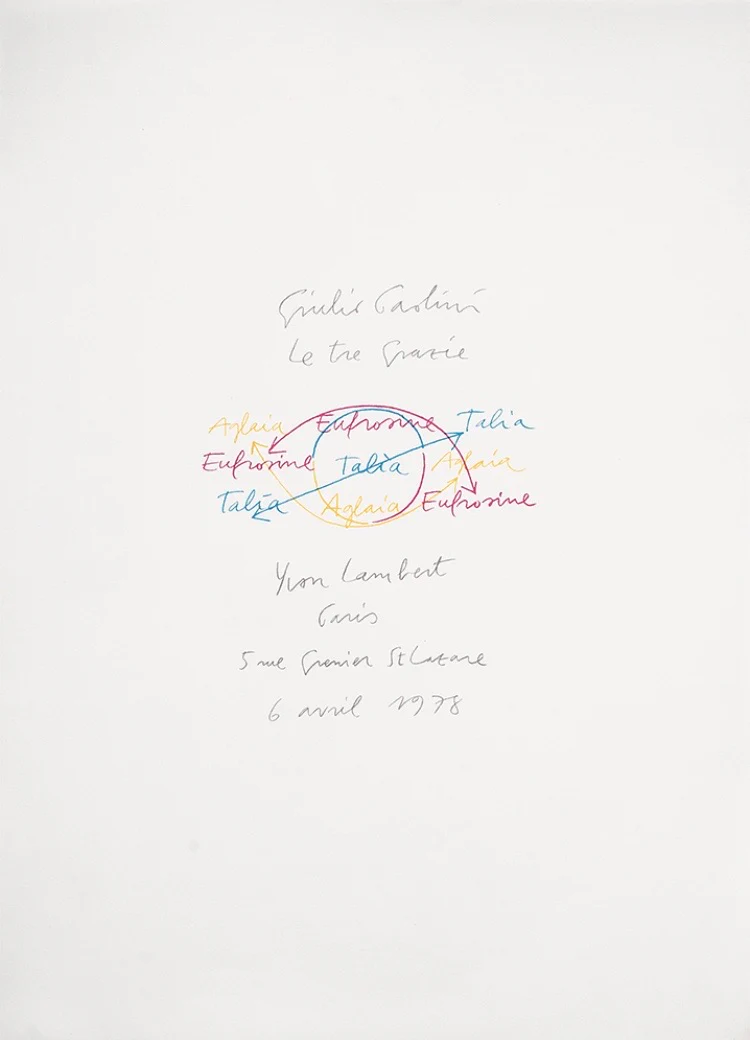 Giulio Paolini
Le tre Grazie
Aglaia Eufrosine Talia
Eufrosine Talia Aglaia
Talia Aglaia Eufrosine
Yvon Lambert
Paris
5 rue Grenier St Lazare
6 avril 1978